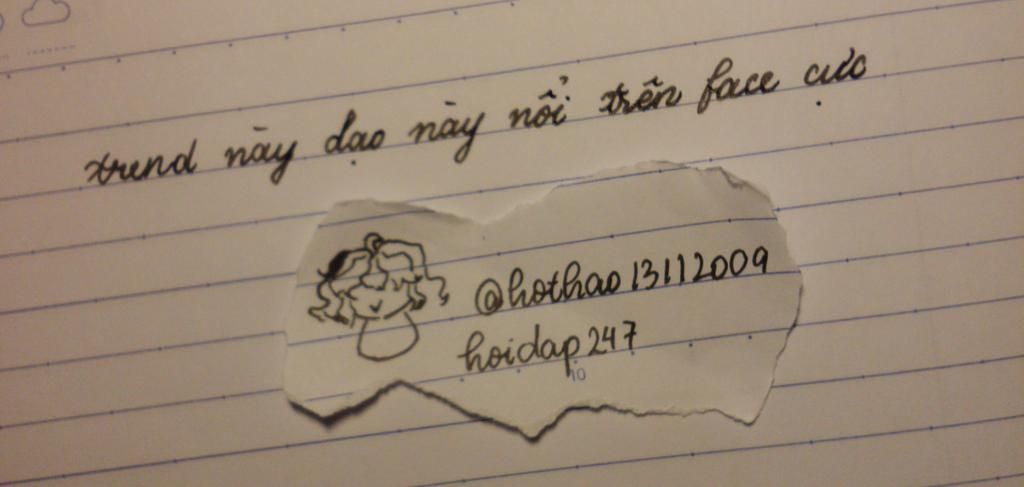 trend này dạo này nổi trên face cực
@hothao13112009
hoidap247
10